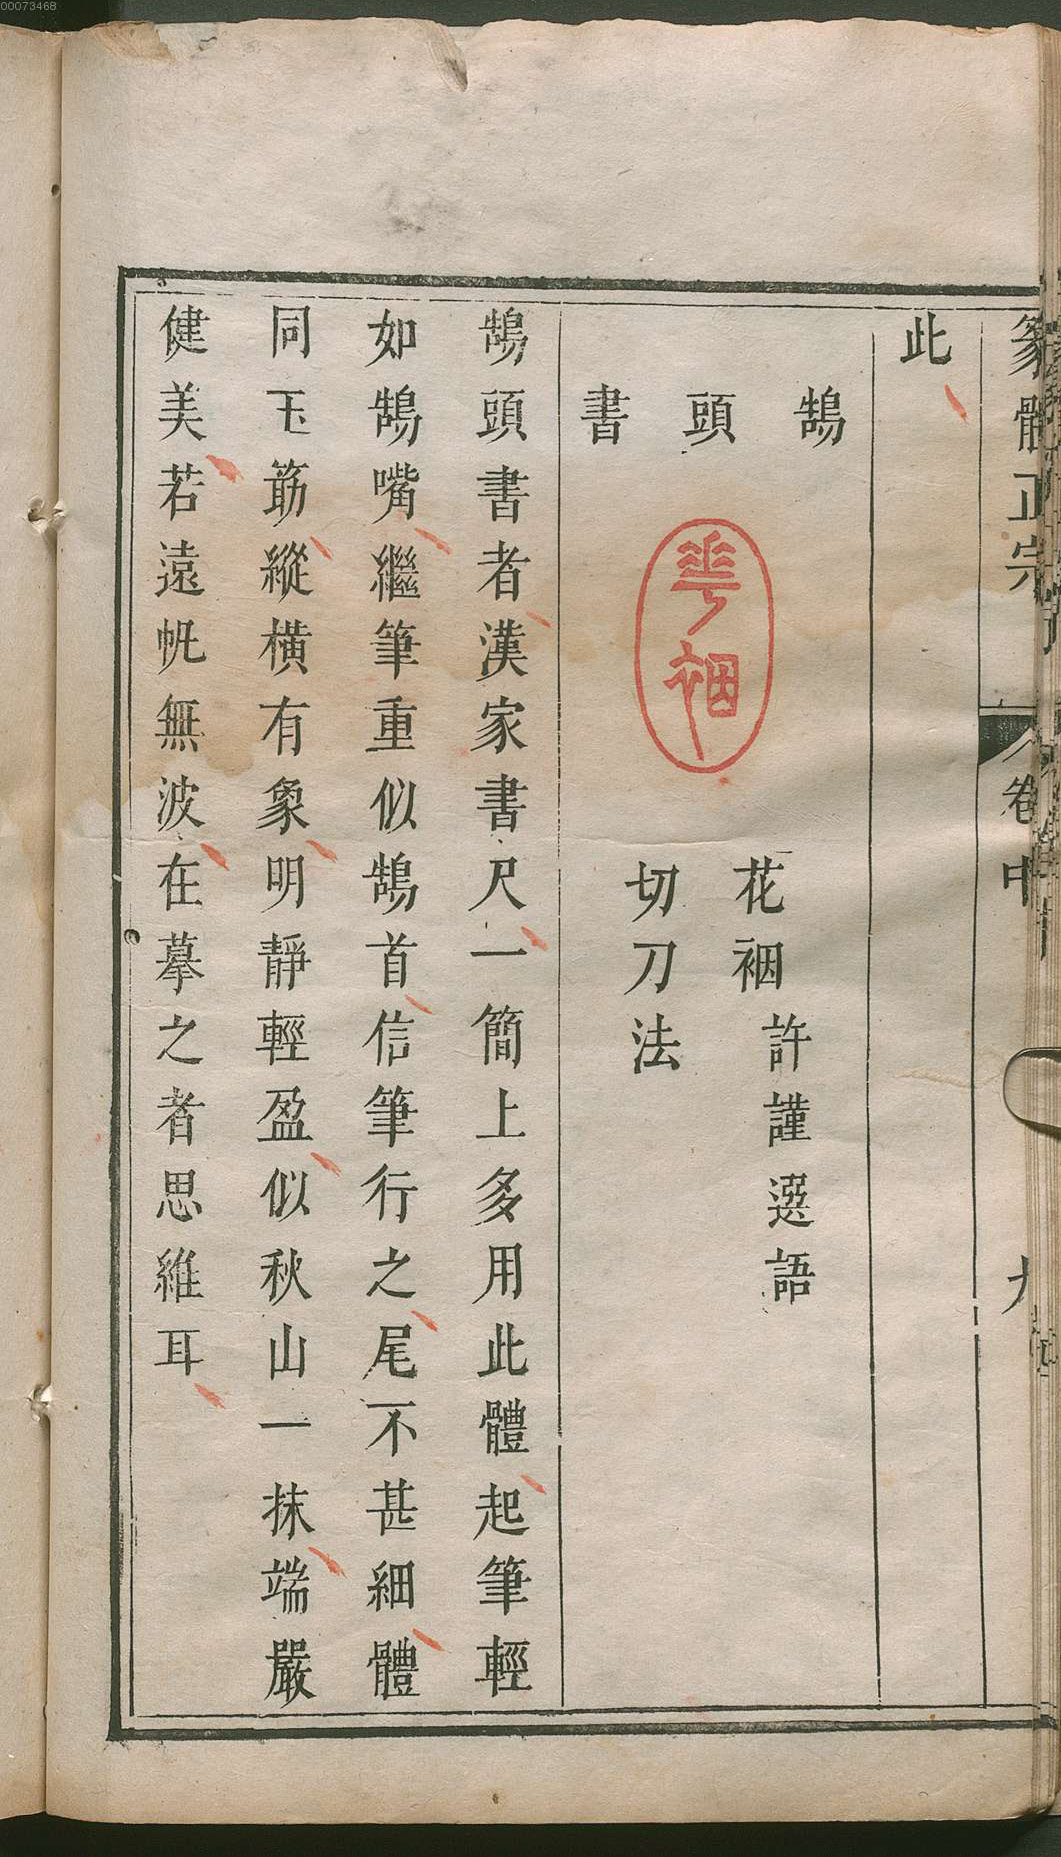 00073468
篆體正宗 卷中 九
此
鵠頭書
華裀
花裀 許謹選語
切刀法
鵠頭書者漢家書尺一簡上多用此體起筆輕
如鵠嘴繼筆重似鵠首信筆行之尾不甚細體
同玉筯縱橫有象明靜輕盈似秋山一抹端嚴
健美若遠帆無波在摹之者思維耳